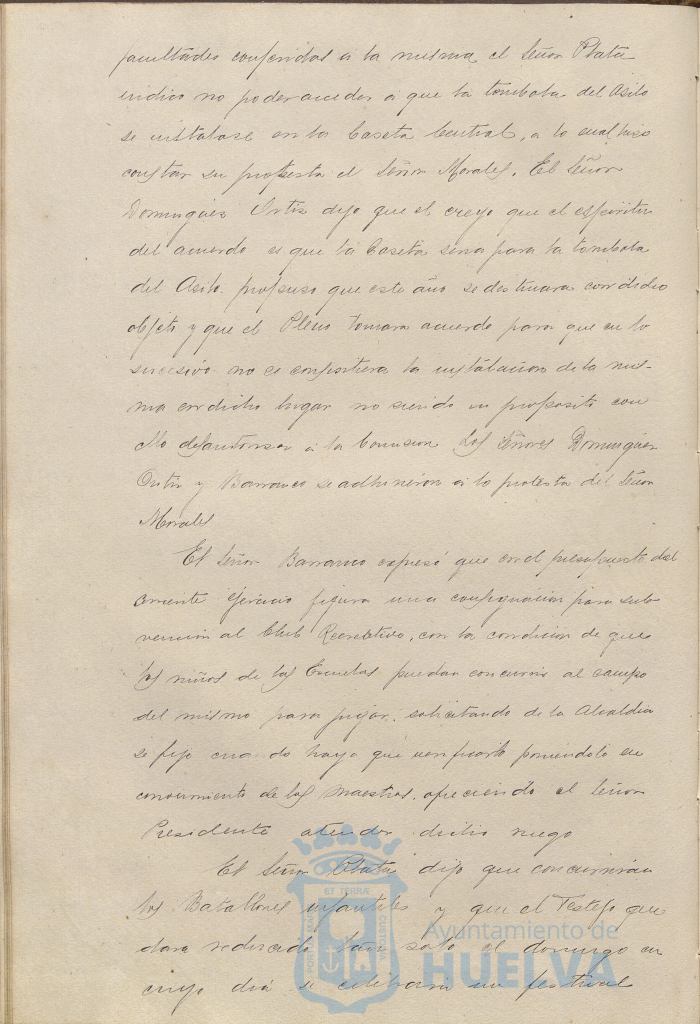 facultades conferidas a la misma el Señor Plata
indico no poder acceder a que la tombola del Asilo
se instalase en la Caseta Central, a lo cual hizo
constar su protesta el Señor Morales. El Señor
Dominguez Ortiz dijo que el creyo que el espiritu
del acuerdo es que la Caseta sera para la tombola
del Asilo propuso que este año se destinara con dicho
objeto y que el Pleno tomara acuerdo para que en lo
sucesivo no se consintiera la instalacion de la mis-
ma en dicho lugar no siendo su proposito con
ello desautorizar a la Comision Los Señores Dominguez
Ortiz y Barranco se adhirieron a la protesta del Señor
Morales
El Señor Barranco expresó que en el presupuesto del
corriente ejercicio figura una consignacion para sub
vencion al Club Recreativo, con la condicion de que
los niños de las Escuelas puedan concurrir al campo
del mismo para jugar, solicitando de la Alcaldia
se fije cuando haya que verificarlo poniendolo en
conocimiento de los maestros, ofreciendo el Señor
Presidente atender dicho ruego
El Señor Plata dijo que concurriran
los Batallones infantiles y que el Festejo que
dara reducido tan solo al domingo en
cuyo dia se celebrara un festival
PORTUS MARIS ET TERRAE CUSTODIA
Ayuntamiento de
HUELVA